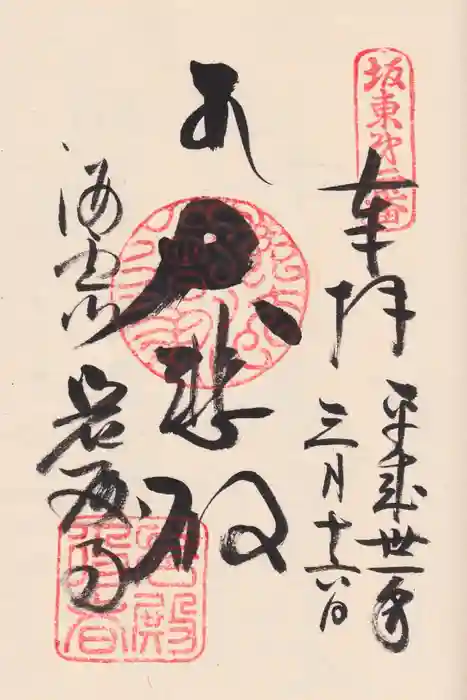 坂東第二番
奉拝
平成丗一年
三月十六日
大悲殿
海雲山
岩殿寺